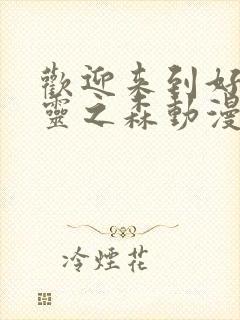 歡迎来到好
靈之森動漫
冷煙花